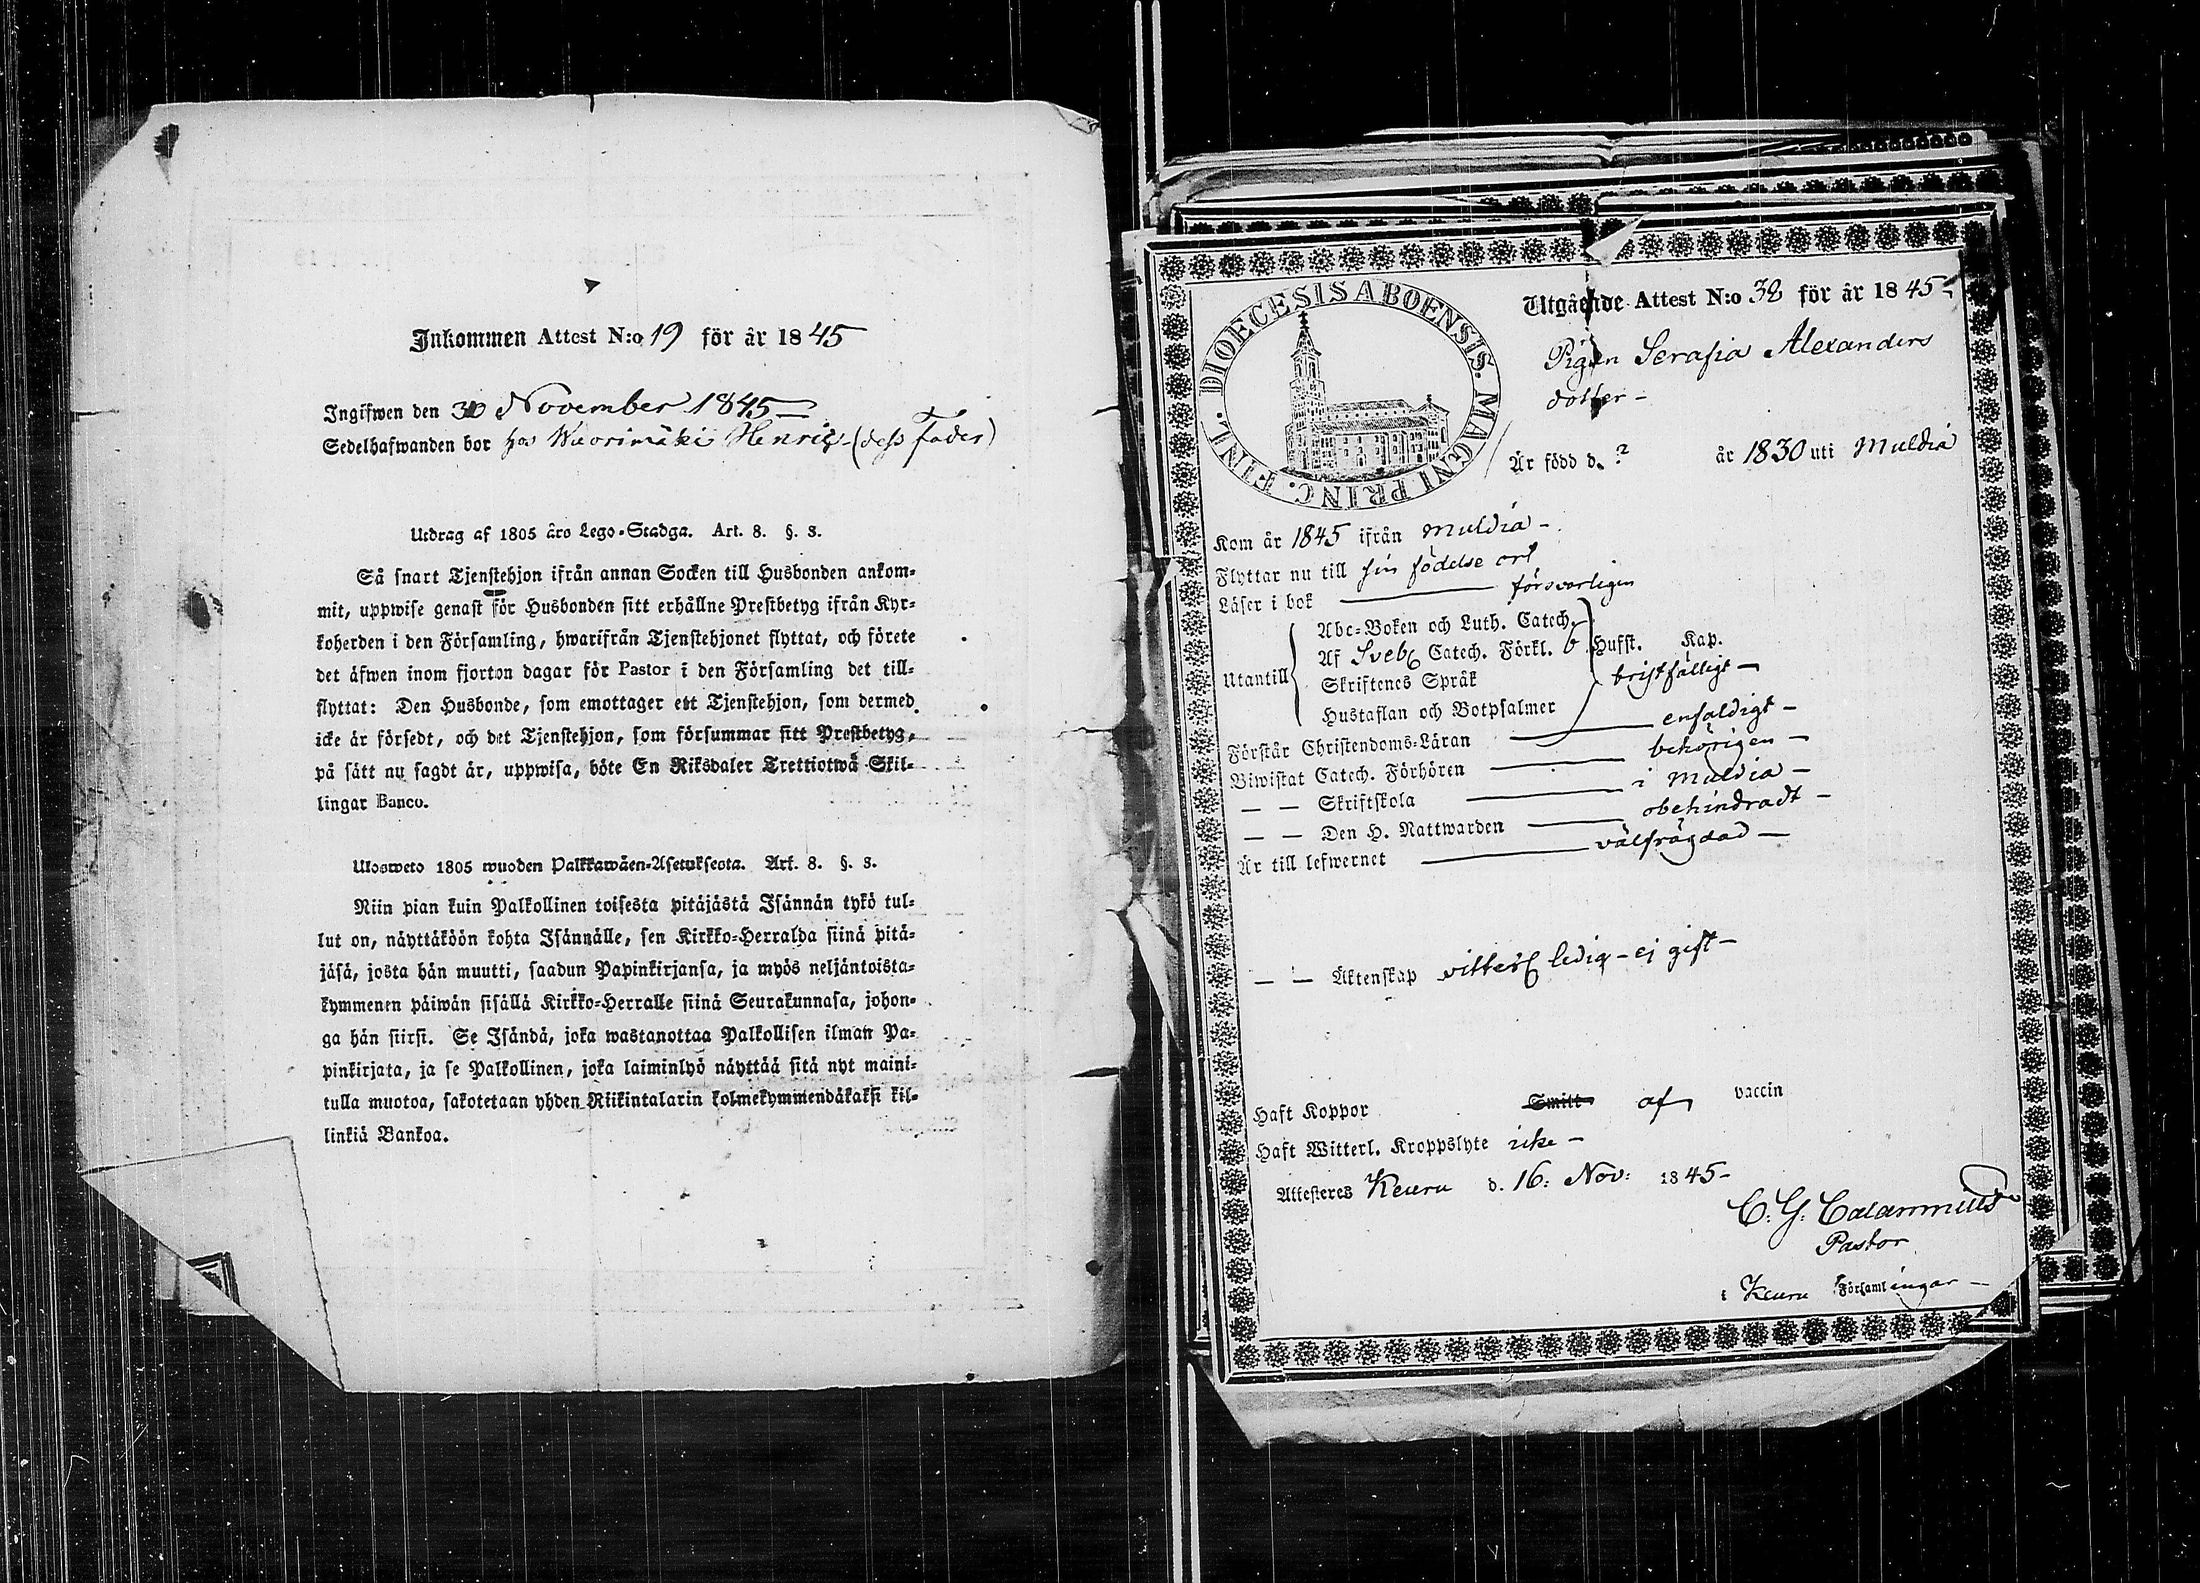 Inkommen Attest N:o 19 för år 1845
Ingifwen den 30 November 1845
Sedelhafwanden bor hos Wuorimäki Henric (dess Fader)
Utdrag af 1805 års Lego-Stadga. Art. 8. §. 8.
Så snart Tjenstehjon ifrån annan Socken till Husbonden ankom-
mit, uppwise genast för Husbonden sitt erhållne Prestbetyg ifrån Kyr-
koherden i den Församling, hwarifrån Tjenstehjonet flyttat, och förete
det äfwen inom fjorton dagar för Pastor i den Församling det till-
flyttat: Den Husbonde, som emottager ett Tjenstehjon, som dermed
icke är försedt, och det Tjenstehjon, som försummar sitt Prestbetyg,
på sätt nu sagdt är, uppwisa, böte En Riksdaler Trettiotwå Skil-
lingar Banco.
Ulosweto 1805 wuoden Palkkawäen-Asetuksesta. Art. 8. §. 8.
Niin pian kuin Palkollinen toisesta pitäjästä Isännän tykö tul-
lut on, näyttäköön kohta Isännälle, sen Kirkko-Herralda siinä pitä-
jäsä, josta hän muutti, saadun Papinkirjansa, ja myös neljäntoista-
kymmenen päiwän sisällä Kirkko-Herralle siinä Seurakunnasa, johon-
ga hän siirsi. Se Isändä, joka wastanottaa Palkollisen ilman Pa-
pinkirjata, ja se Palkollinen, joka laiminlyö näyttää sitä nyt maini-
tulla muotoa, sakotetaan yhden Riikintalarin kolmekymmendäkaksi kil-
linkiä Bankoa.
DIOECESIS ABOENSIS. MAGNI PRINC. FINL.
Utgående Attest N:o 32 för år 1845
Pigan Serafia Alexanders
dotter
Är född d. ? år 1830 uti Muldia
Kom år 1845 ifrån Muldia
Flyttar nu till sin födelse ort
Läser i bok försvarligen
Utantill
Abc-Boken och Luth. Catech.
Af Sveb Catech. Förkl. 6 Hufst. Kap.
Skriftenes Språk bristfälligt
Hustaflan och Botpsalmer
Förstår Christendoms-Läran enfaldigt
Biwistat Catech. Förhören behörigen
— — Skriftskola i Muldia
— — Den H. Nattwarden obehindradt
Är till lefwernet välfrägdad
— — Äktenskap vitterl ledig - ej gift
Haft Koppor Smitt af vaccin
Haft Witterl. Kroppslyte icke
Attesteres Keuru d. 16: Nov: 1845
C. G. Calamnius
Pastor
i Keuru Församlingar